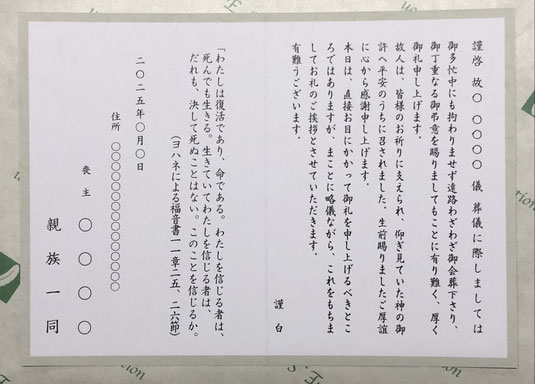 謹啓 故〇 〇〇〇〇 儀 葬儀に際しましては
御多忙中にも拘わりませず遠路わざわざ御会葬下さり、
御丁重なる御弔意を賜りましてもことに有り難く、厚く
御礼申し上げます。
故人は、皆様のお祈りに支えられ、仰ぎ見ていた神の御
許へ平安のうちに召されました。生前賜りましたご厚誼
に心から感謝申し上げます。
本日は、直接お目にかかって御礼を申し上げるべきとこ
ろではありますが、まことに略儀ながら、これをもちま
してお礼のご挨拶とさせていただきます。
有難うございます。
謹 白
「わたしは復活であり、命である。わたしを信じる者は、
死んでも生きる。生きていてわたしを信じる者は、
だれも、決して死ぬことはない。このことを信じるか。
(ヨハネによる福音書一一章二五、二六節)
二〇二五年〇月〇日
住所 〇〇〇〇〇〇〇〇〇〇〇〇〇
喪 主 〇 〇 〇 〇
親 族 一 同